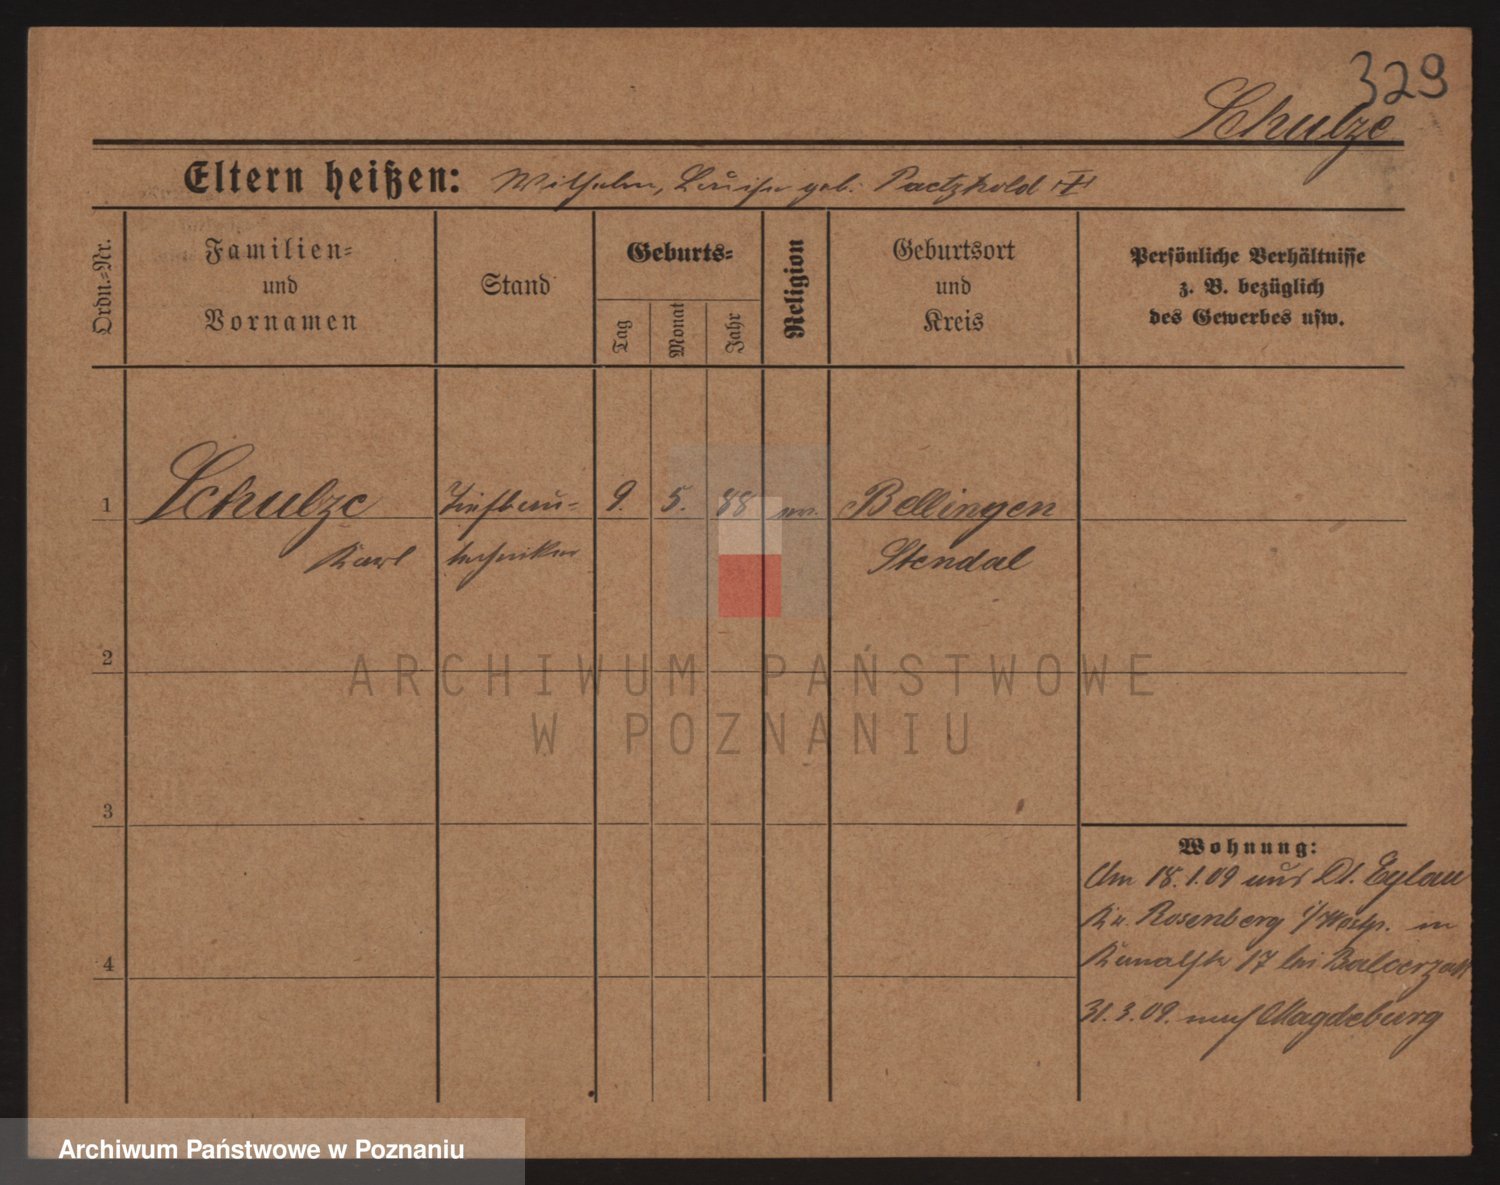 329
Schulze
Eltern heißen: Wilhelm, Luise geb. Paetzhold
Ordn.-Nr.
Familien-
und
Vornamen
Stand
Geburts-
Tag
Monat
Jahr
Religion
Geburtsort
und
Kreis
Persönliche Verhältnisse
z. B. bezüglich
des Gewerbes usw.
1 Schulze Tiefbau- 9. 5. 88 ev. Bellingen
Karl techniker Stendal
2
3
4
Wohnung:
Am 18.1.09 aus Dt. Eylau
Kr. Rosenberg i/Westp. in
Kanalstr 17 bei Balcerzak
31.3.09. nach Magdeburg
ARCHIWUM PAŃSTWOWE
W POZNANIU
Archiwum Państwowe w Poznaniu